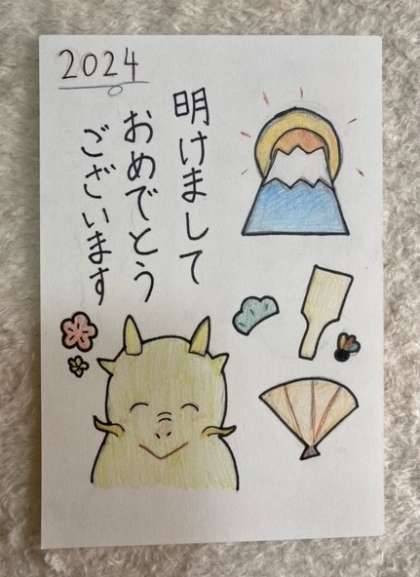 2024
明けまして
おめでとう
ございます